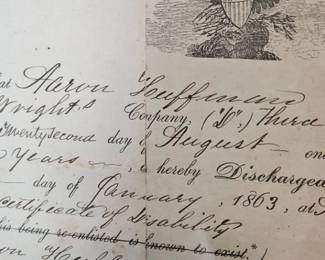 at Aaron Huffman
Wright's Company, ("D",) Third
Twenty Second day of August one
Years , is hereby Discharged
day of January, 1863, at
Certificate of Disability
his being re-enlisted is known to exist.*)